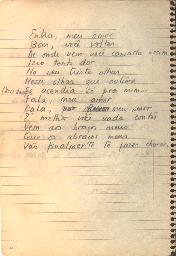 Entra, meu amor
Bom, você voltou
De onde vem você cansada assim
Isso tanta dor
No seu triste olhar
Nesse olhar que outrora
acendia só pra mim...
Fala, meu amor
Cala, meu amor
É melhor você nada contar
Vem aos braços meus
aos abraços meus
Vão finalmente te fazer chorar